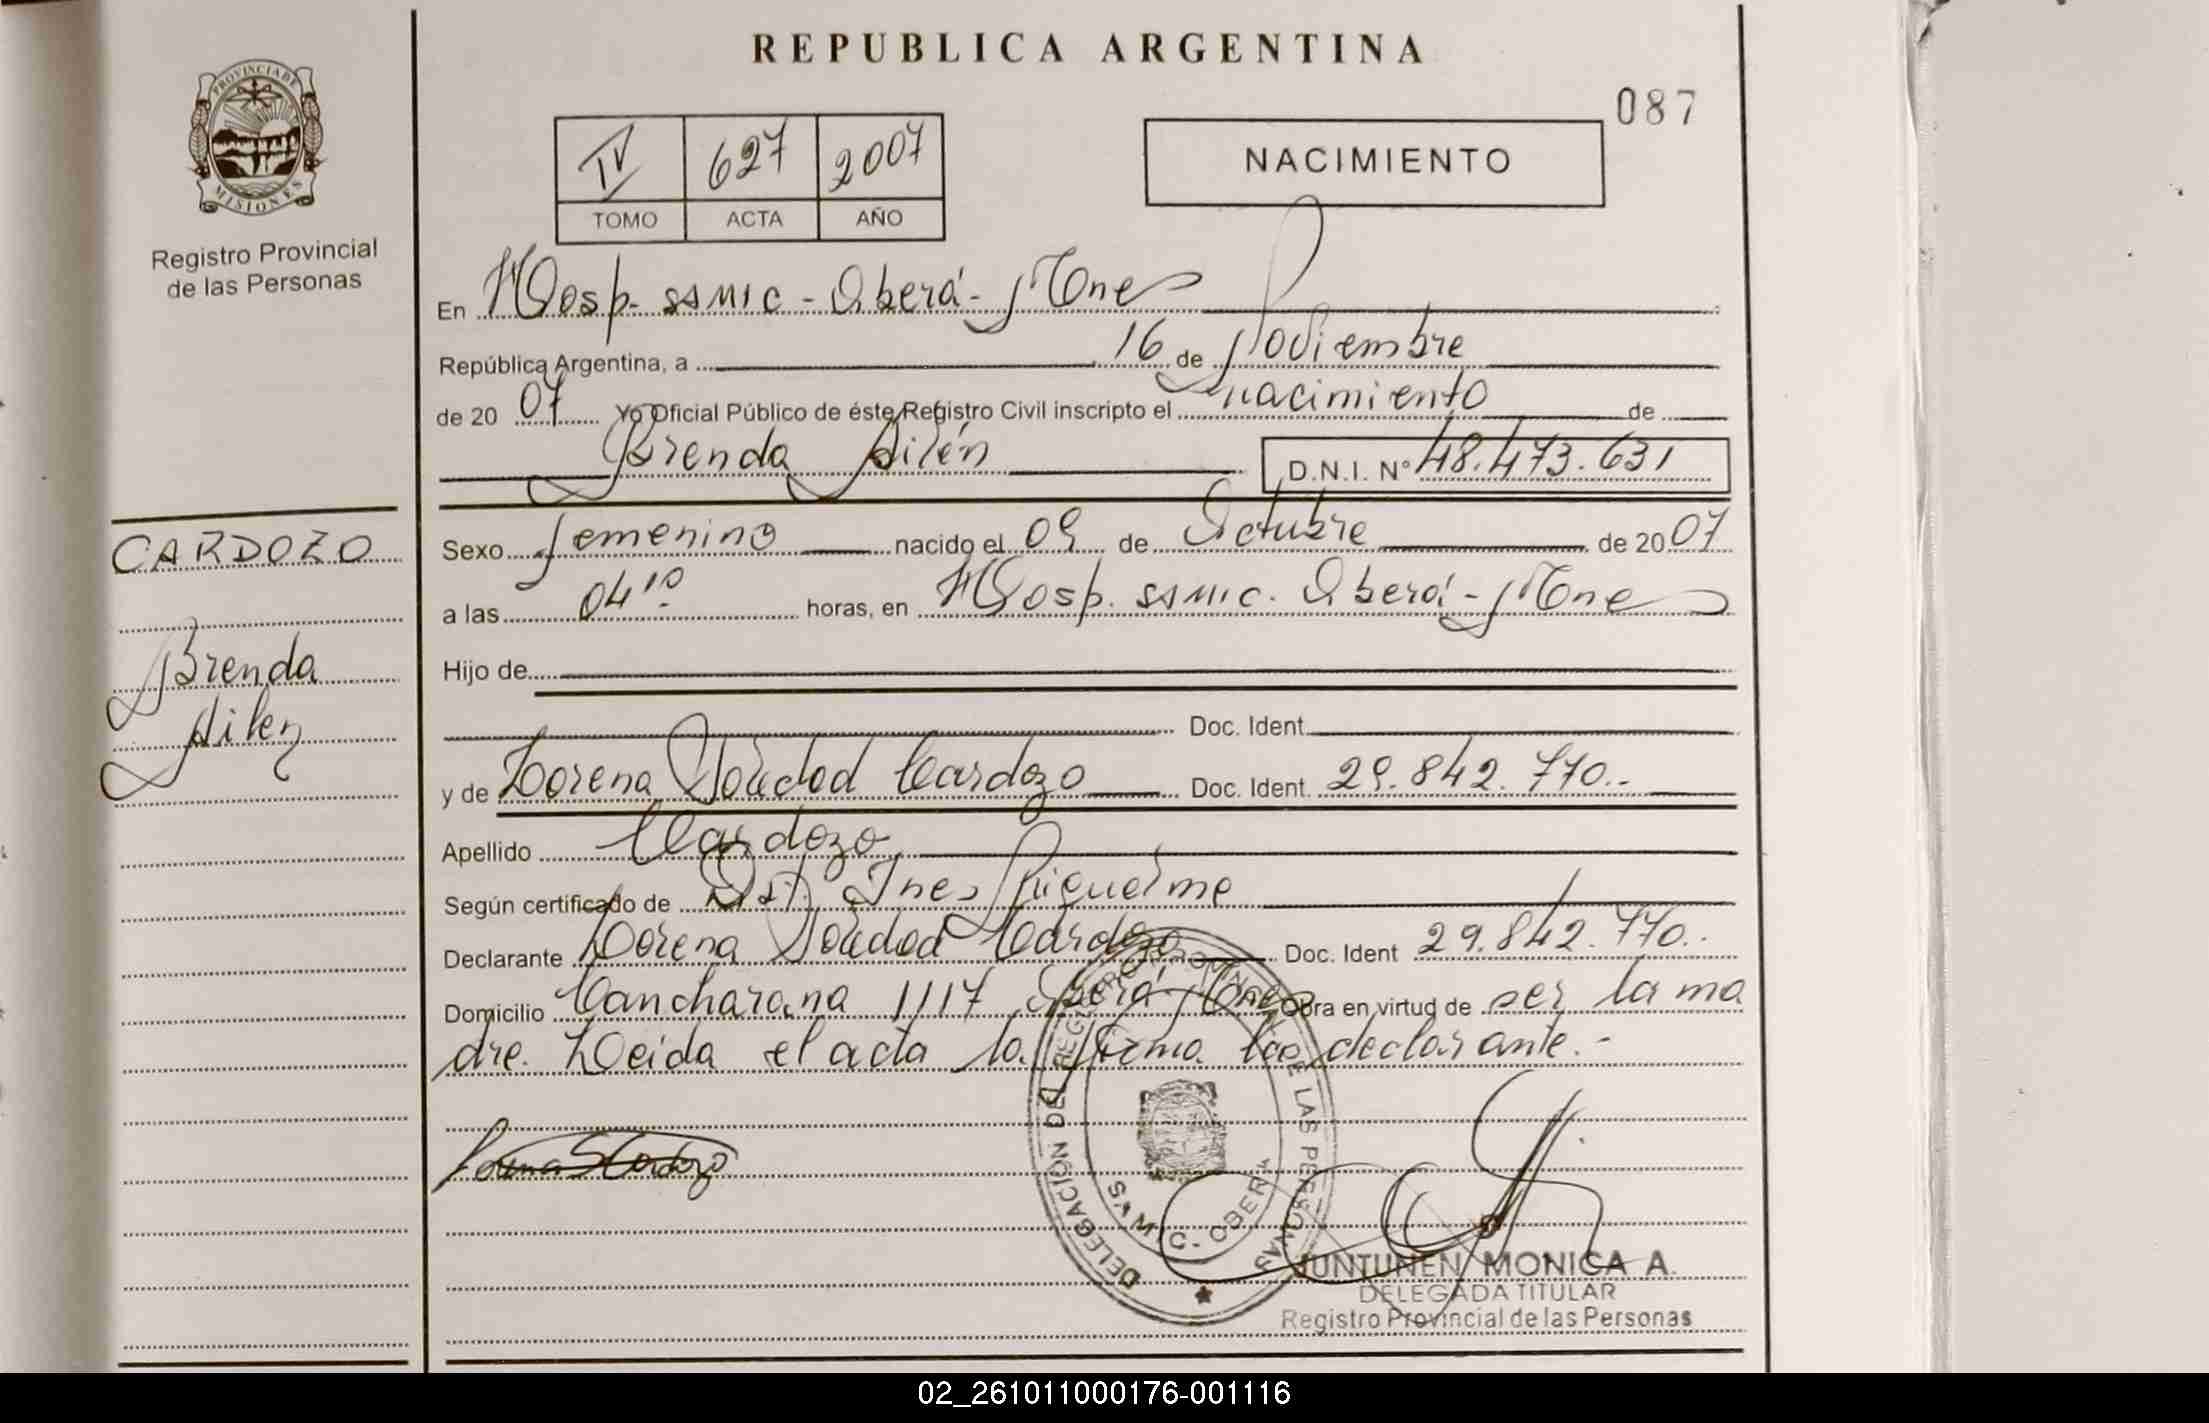 REPUBLICA ARGENTINA
087
PROVINCIA DE
MISIONES
Registro Provincial
de las Personas
IV 627 2007
TOMO ACTA AÑO
NACIMIENTO
En Hosp. SAMIC - Oberá - Mnes
República Argentina, a 16 de Noviembre
de 20 07 Yo Oficial Público de éste Registro Civil inscripto el nacimiento de
Brenda Ailén D.N.I. Nº 48.473.631
CARDOZO
Brenda
Ailen
Sexo femenino nacido el 09 de Octubre de 20 07
a las 04 10 horas, en Hosp. SAMIC. Oberá - Mnes
Hijo de
Doc. Ident.
y de Lorena Soledad Cardozo Doc. Ident. 29.842.770.-
Apellido Cardozo
Según certificado de Obst. Ines Riquelme
Declarante Lorena Soledad Cardozo Doc. Ident 29.842.770.-
Domicilio Cancharana 1117 Oberá Mnes Obra en virtud de ser la ma
dre. Leida el acta la firma la declarante.-
Lorena S Cardozo
DELEGACIÓN DEL REGISTRO PROVINCIAL DE LAS PERSONAS
OBERA
JUNTUNEN MONICA A.
DELEGADA TITULAR
Registro Provincial de las Personas
02_261011000176-001116